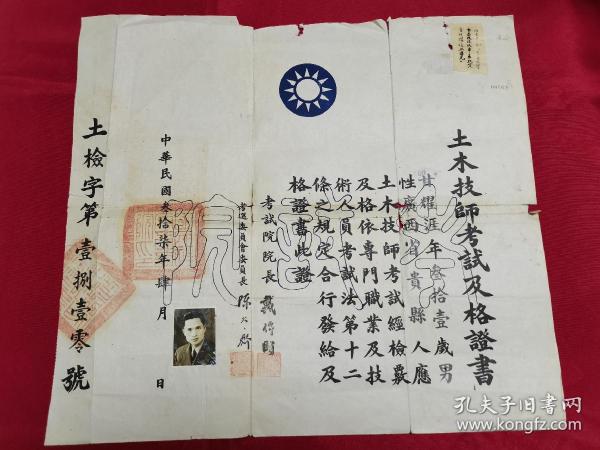 土木技師考試及格證書
甘耀涯年叁拾壹歲男
性廣西省貴縣人應
土木技師考試經檢覈
及格依專門職業及技
術人員考試法第十二
條之規定合行發給及
格證書此證
考試院院長
考選委員會委員長
中華民國叁拾柒年肆月 日
土檢字第壹捌壹零號
孔夫子旧书网
www.kongfz.com